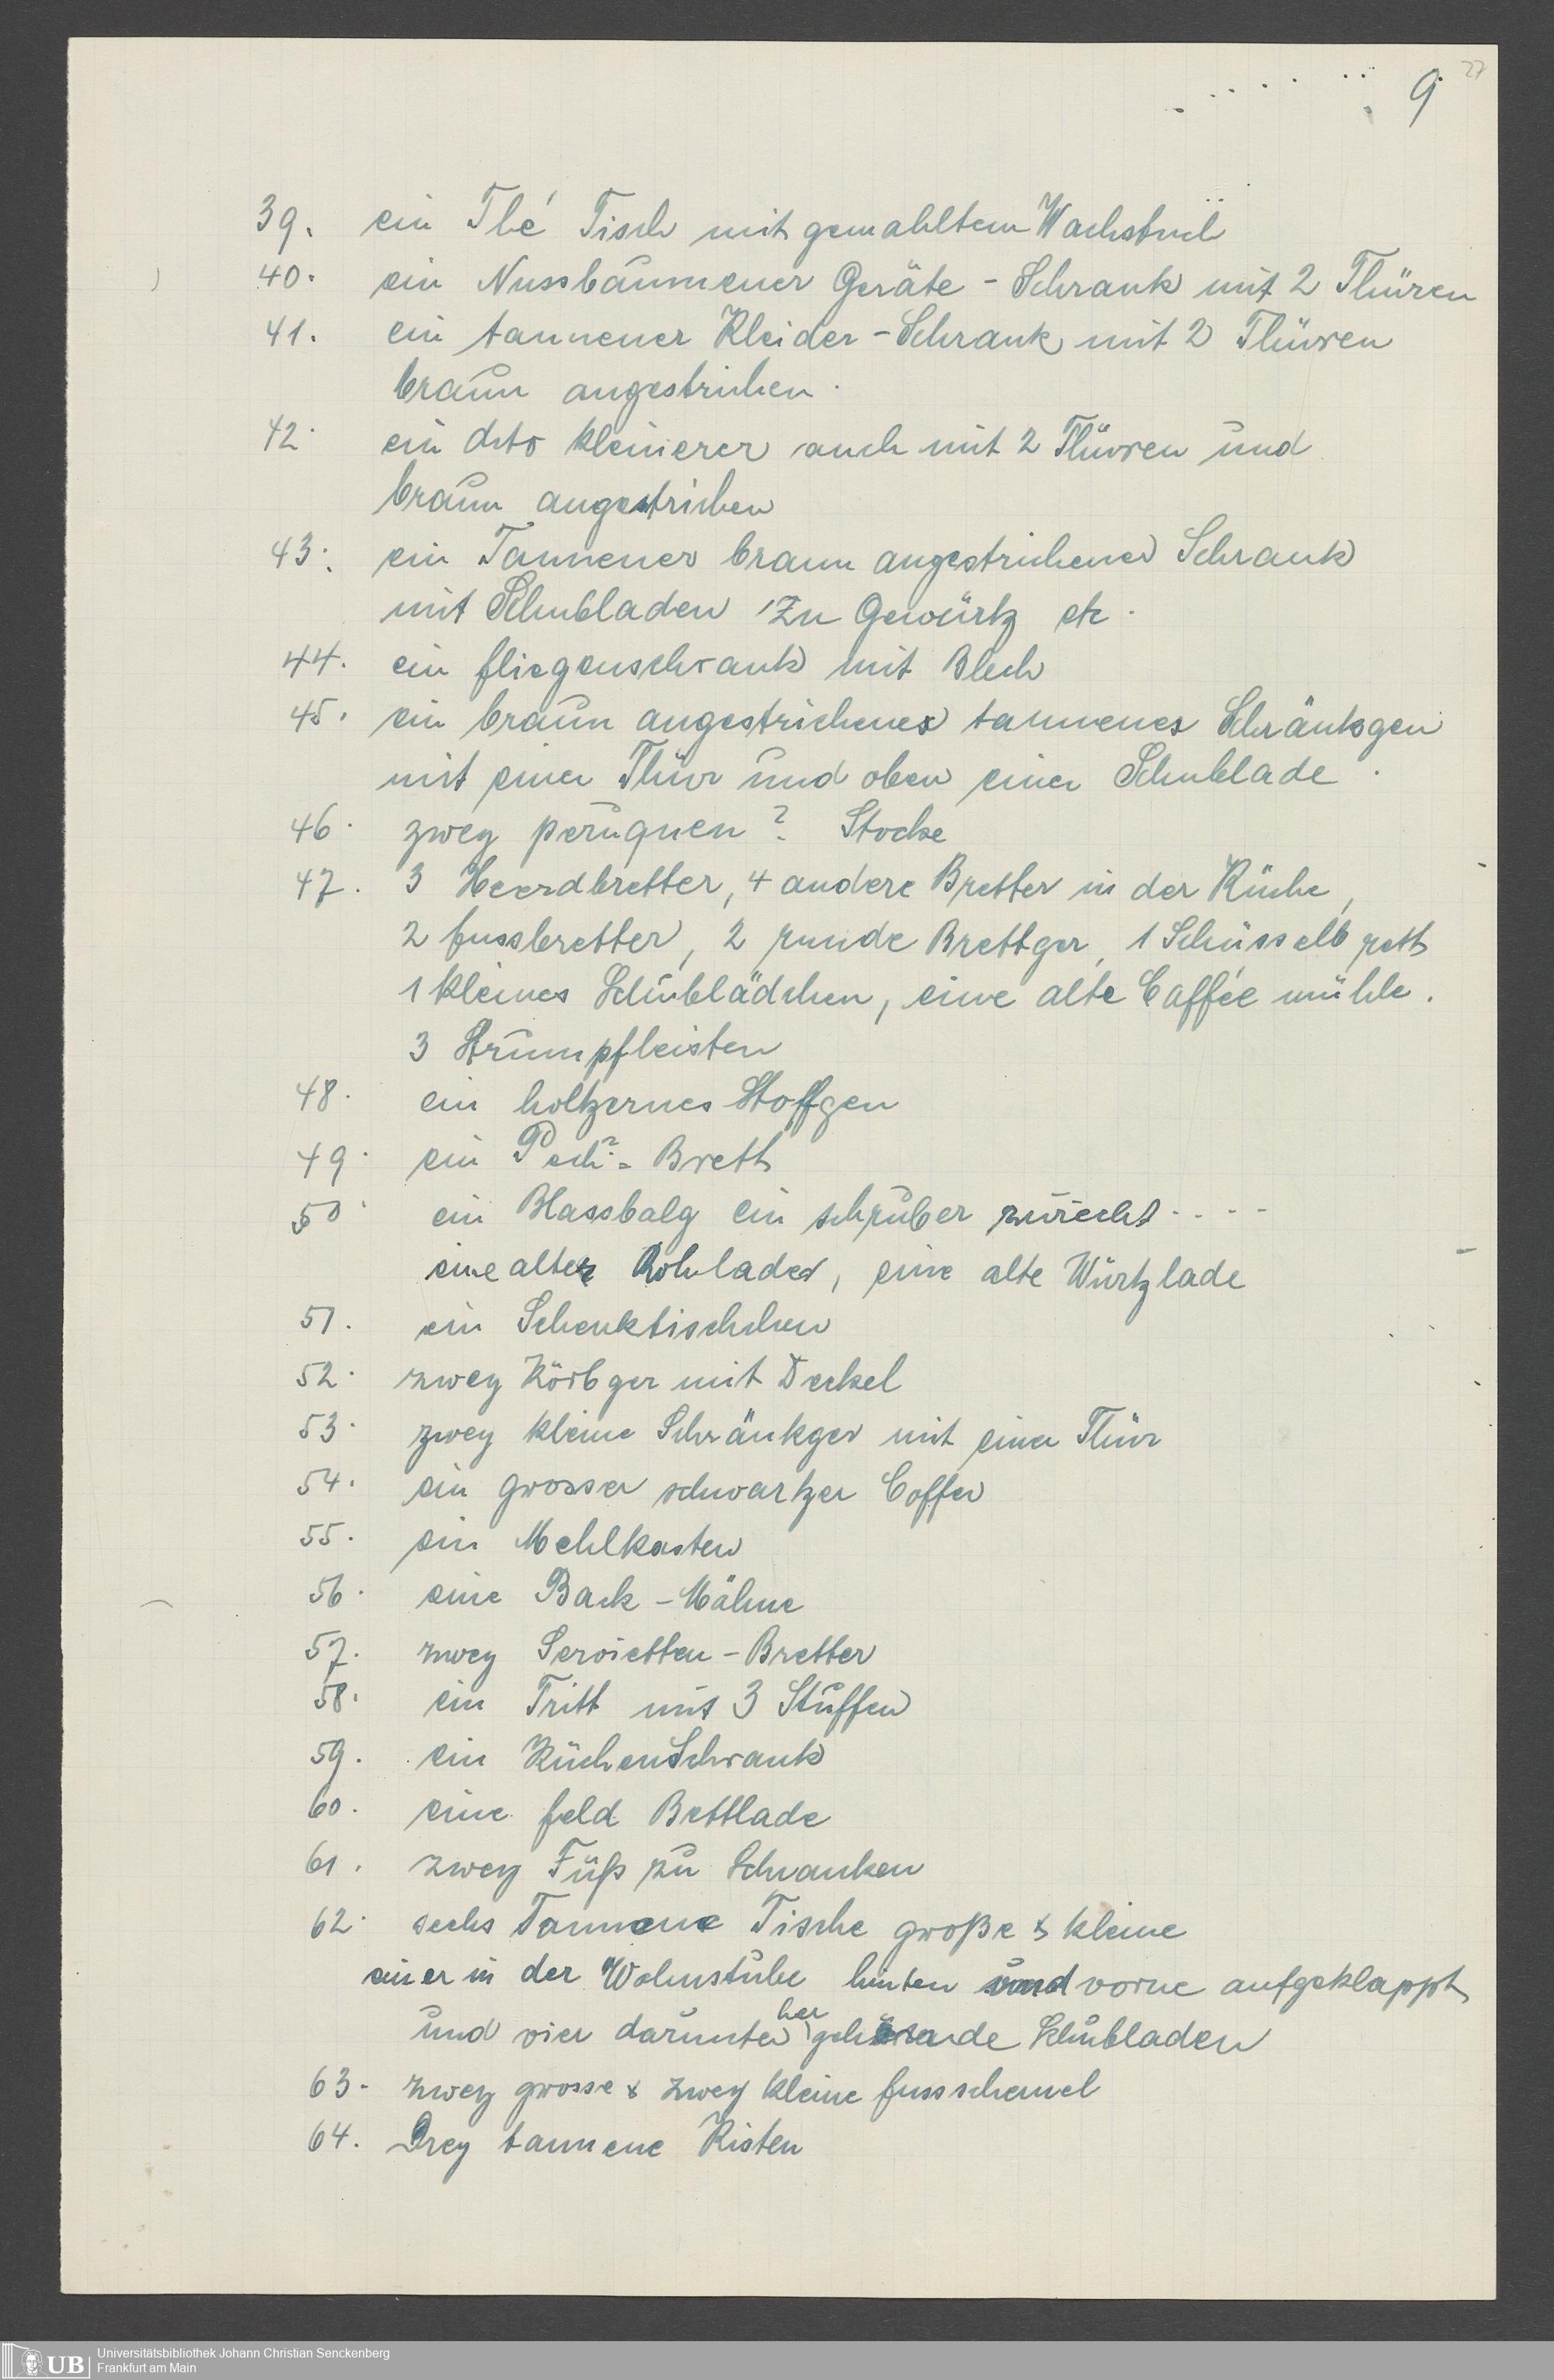 27
9
39. ein Thé Tisch mit gemahltem Wachstuch
40. ein Nussbaumener Geräte - Schrank mit 2 Thüren
41. ein tannener Kleider - Schrank mit 2 Thüren
braun angestrichen.
42. ein dito kleinerer auch mit 2 Thüren und
braun angestrichen
43. ein Tannener braun angestrichener Schrank
mit Schubladen zu Gewürtz etc.
44. ein fliegenschrank mit Blech
45. ein braun angestrichenes tannenes Schränkgen
mit einer Thür und oben einer Schublade.
46. zwey peruquen? Stocke
47. 3 Heerdbretter, 4 andere Bretter in der Küche,
2 fussbretter, 2 runde Brettger, 1 Schüsselbrett
1 kleines Schublädchen, eine alte Caffée mühle.
3 Strumpfleisten
48. ein holtzernes Stoffgen
49. ein Pech? = Brett
50. ein Blassbalg ein schruber zurecht - - - -
eine alte Rohlade, eine alte Würtzlade
51. ein Schenktischchen
52. zwey Körbger mit Deckel
53. zwey kleine Schränkger mit einer Thür
54. ein grosser schwartzer Coffer
55. ein Mehlkasten
56. eine Back - Mähne
57. zwey Servietten - Bretter
58. ein Tritt mit 3 Stuffen
59. ein KüchenSchrank
60. eine feld Bettlade
61. zwey Füß zu Schranken
62. sechs Tannene Tische große & kleine
einer in der Wohnstube hinten und vorne aufgeklappt
und vier darunter her gehende Schubladen
63. zwey grosse & zwey kleine fussschemel
64. Drey tannene Kisten
UB
Universitätsbibliothek Johann Christian Senckenberg
Frankfurt am Main